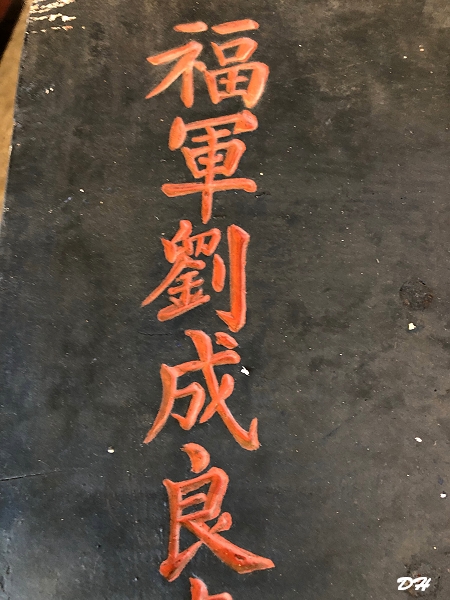 福軍劉成良
DH